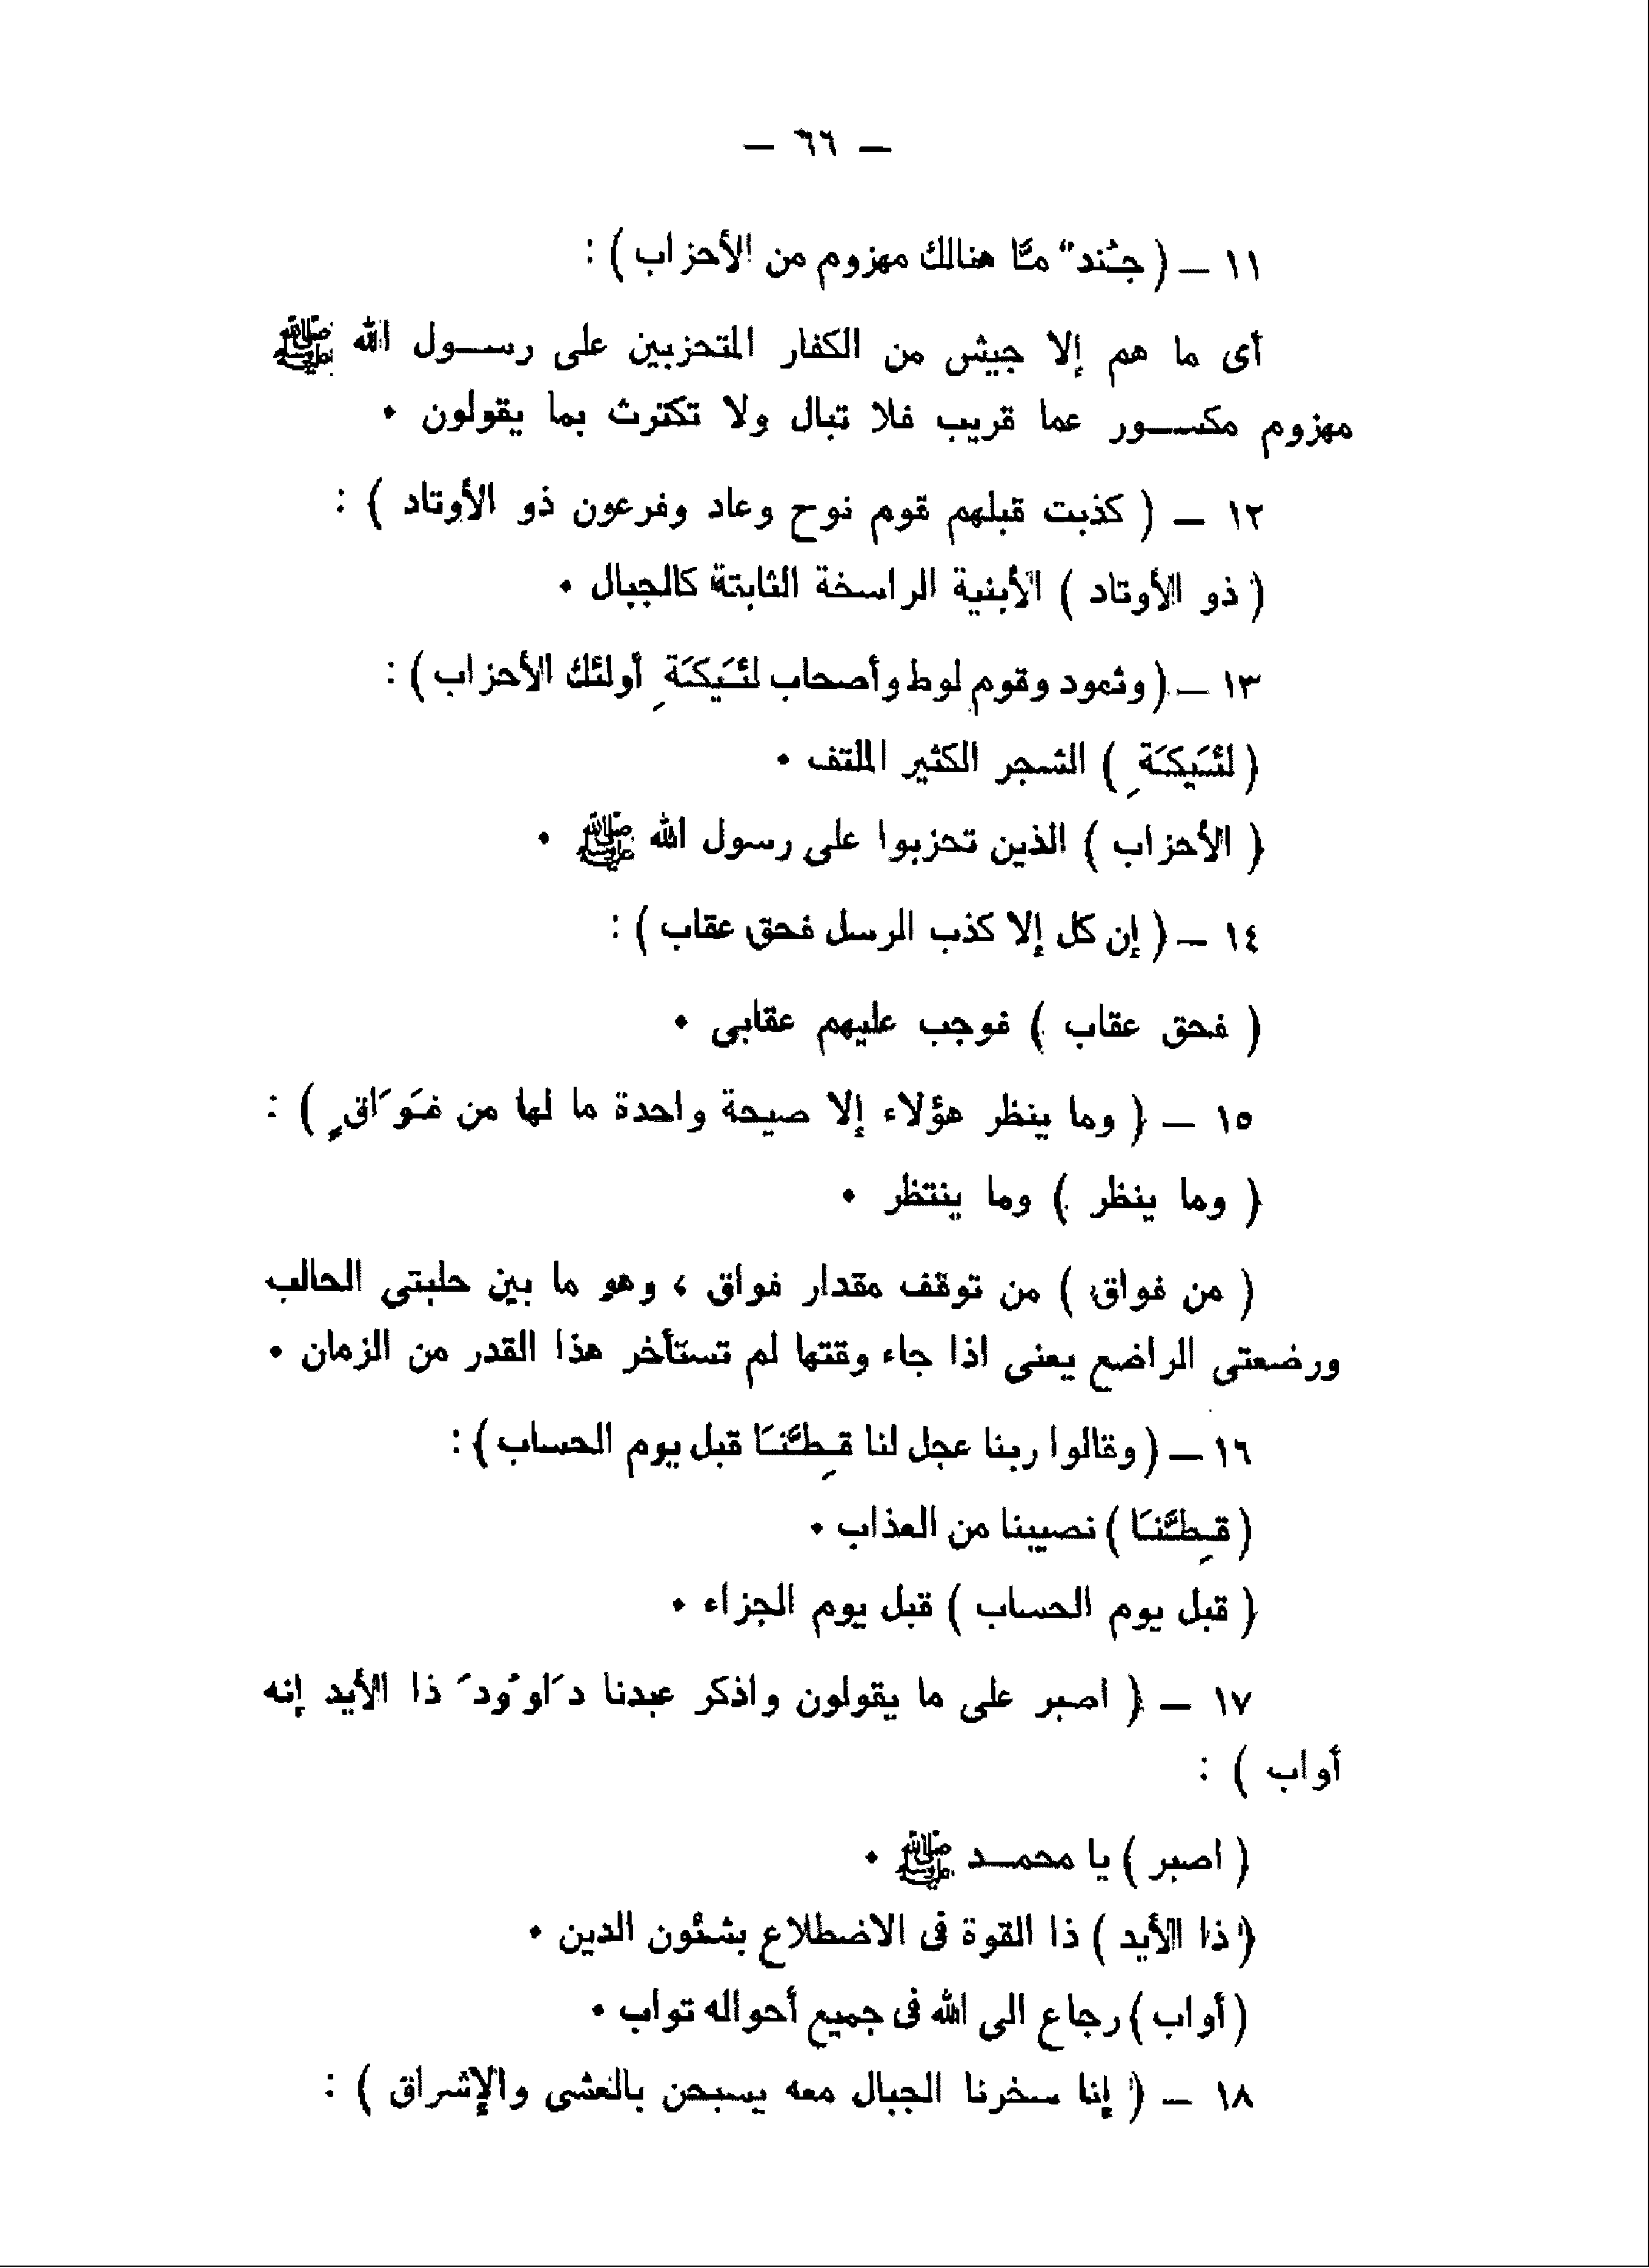 — ٦٦ —
١١ — ( جُند" مَّا هنالك مهزوم من الأحزاب ) :
أى ما هم إلا جيش من الكفار المتحزبين على رســول الله ﷺ
مهزوم مكســور عما قريب فلا تبال ولا تكترث بما يقولون ٠
١٢ — ( كذبت قبلهم قوم نوح وعاد وفرعون ذو الأوتاد ) :
( ذو الأوتاد ) الأبنية الراسخة الثابتة كالجبال ٠
١٣ — ( وثمود وقوم لوط وأصحاب لئَيكَةِ أولئك الأحزاب ) :
( لئَيكَةِ ) الشجر الكثير الملتف ٠
( الأحزاب ) الذين تحزبوا على رسول الله ﷺ ٠
١٤ — ( إن كل إلا كذب الرسل فحق عقاب ) :
( فحق عقاب ) فوجب عليهم عقابى ٠
١٥ — ( وما ينظر هؤلاء إلا صيحة واحدة ما لها من فَوَاقٍ ) :
( وما ينظر ) وما ينتظر ٠
( من فواق ) من توقف مقدار فواق ، وهو ما بين حلبتى الحالب
ورضعتى الراضع يعنى اذا جاء وقتها لم تستأخر هذا القدر من الزمان ٠
١٦ — ( وقالوا ربنا عجل لنا قِطَّنَا قبل يوم الحساب ) :
( قِطَّنَا ) نصيبنا من العذاب ٠
( قبل يوم الحساب ) قبل يوم الجزاء ٠
١٧ — ( اصبر على ما يقولون واذكر عبدنا دَاوُودَ ذا الأيد إنه
أواب ) :
( اصبر ) يا محمــد ﷺ ٠
( ذا الأيد ) ذا القوة فى الاضطلاع بشئون الدين ٠
( أواب ) رجاع الى الله فى جميع أحواله تواب ٠
١٨ — ( إنا سخرنا الجبال معه يسبحن بالعشى والإشراق ) :